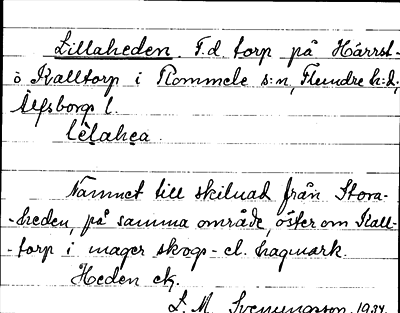 Lillaheden. T.d. torp på Härrst-
ö Kalltorp i Rommele s:n, Flundre h:d,
Älfsborgs l.
Namnet till skilnad från Stora-
-heden, på samma område, öster om Kall-
-torp i mager skogs- el. hagmark.
Heden ck.
L. M. Svenungsson. 1934.